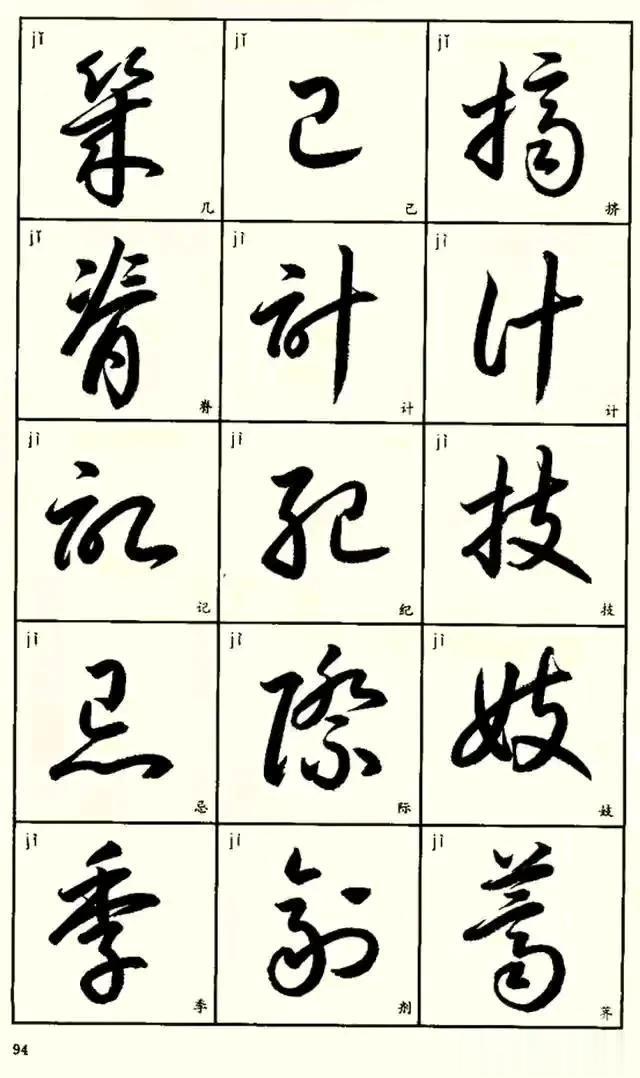 jǐ jǐ jǐ
幾 己 擠
几 己 挤
jǐ jì jì
脊 計 计
脊 计 计
jì jì jì
記 紀 技
记 纪 技
jì jì jì
忌 際 妓
忌 际 妓
jì jì jì
季 劑 薺
季 剂 荠
94